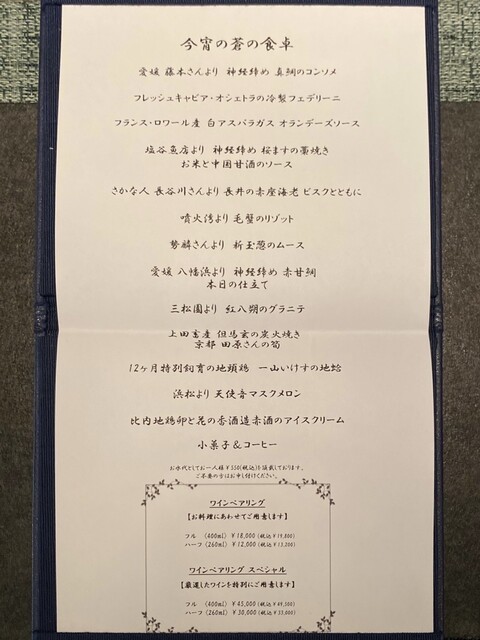 今宵の蒼の食卓
愛媛 藤本さんより 神経締め 真鯛のコンソメ
フレッシュキャビア・オシェトラの冷製フェデリーニ
フランス・ロワール産 白アスパラガス オランデーズソース
塩谷魚店より 神経締め 桜ますの藁焼き
お米と中国甘酒のソース
さかな人 長谷川さんより 長井の赤座海老 ビスクとともに
噴火湾より 毛蟹のリゾット
勢麟さんより 新玉葱のムース
愛媛 八幡浜より 神経締め 赤甘鯛
本日の仕立て
三松園より 紅八朔のグラニテ
上田畜産 但馬玄の炭火焼き
京都 田原さんの筍
12ヶ月特別飼育の地頭鶏 一山いけすの地蛤
浜松より 天使音マスクメロン
比内地鶏卵と花の香酒造赤酒のアイスクリーム
小菓子&コーヒー
お水代としてお一人様¥550(税込)を頂戴しております。
ご不要の方はお申し付けください。
ワインペアリング
【お料理にあわせてご用意します】
フル (400ml) ¥18,000 (税込¥19,800)
ハーフ (260ml) ¥12,000 (税込¥13,200)
ワインペアリング スペシャル
【厳選したワインを特別にご用意します】
フル (400ml) ¥45,000 (税込¥49,500)
ハーフ (260ml) ¥30,000 (税込¥33,000)